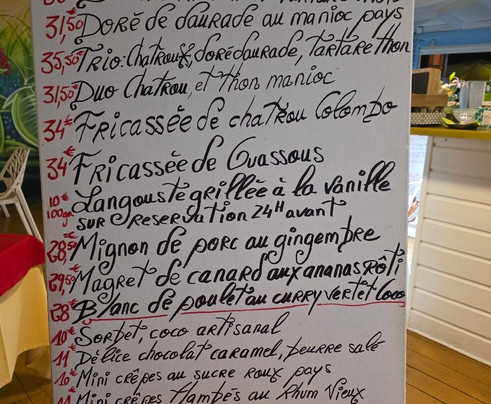 31,50€ Doré de daurade au manioc pays
35,50€ Trio: Chatroux, doré daurade, tartare thon
31,50€ Duo Chatrou, et thon manioc
34€ Fricassée de chatrou Colombo
34€ Fricassée de Ouassous
10€ 100gr Langouste grillée à la vanille
sur reservation 24H avant
28,50€ Mignon de porc au gingembre
29,50€ Magret de canard aux ananas Rôti
28€ Blanc de poulet au curry vert et coco
10€ Sorbet, coco artisanal
11€ Délice chocolat caramel, beurre salé
10€ Mini crêpes au sucre roux pays
11€ Mini crêpes flambés au Rhum Vieux